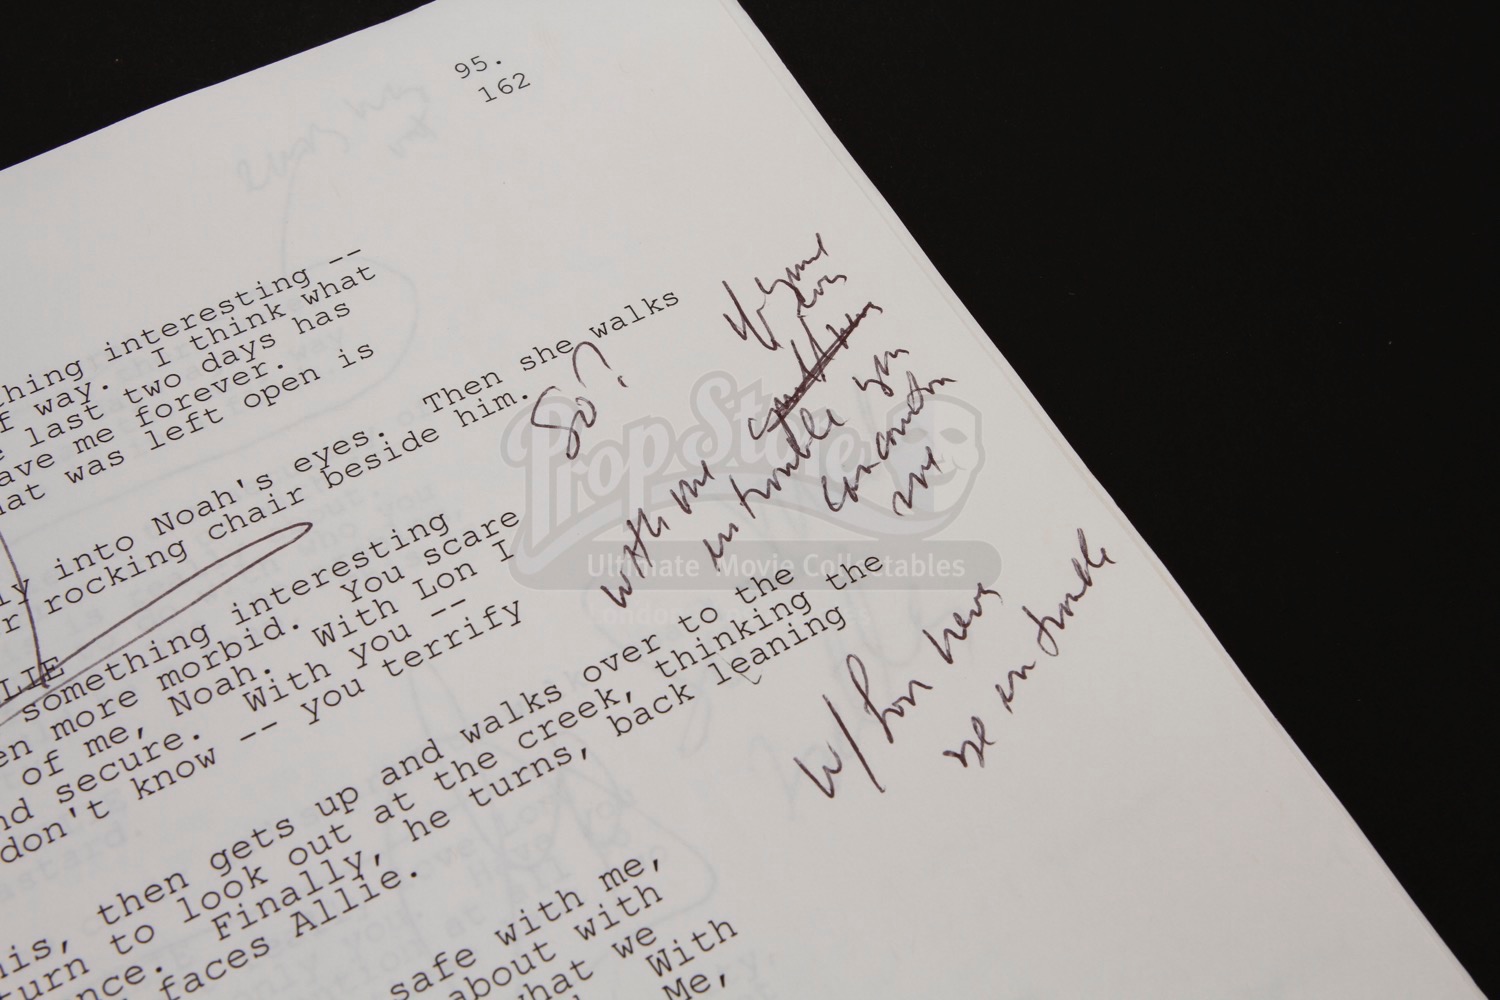 95.
162
thing interesting --
f way. I think what
e last two days has
ave me forever.
hat was left open is
ly into Noah's eyes. Then she walks
r rocking chair beside him.
So?
with me
in trouble you
can
me
LLIE
something interesting
en more morbid. You scare
of me, Noah. With Lon I
nd secure. With you --
don't know -- you terrify
w/ Lon
in trouble
his, then gets up and walks over to the
turn to look out at the creek, thinking the
nce. Finally, he turns, back leaning
faces Allie.
safe with me,
about with
what we
With
Me,
PropStore
Ultimate Movie Collectables